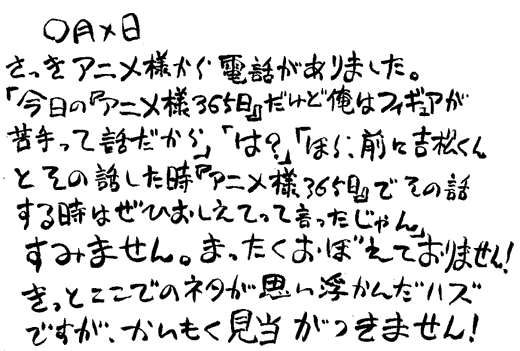 〇月×日
さっきアニメ様から電話がありました。
「今日の『アニメ様365日』だけど俺はフィギュアが
苦手って話だから」「は?」「ほら、前に吉松くん
とその話した時『アニメ様365日』でその話
する時はぜひおしえてって言ったじゃん」
すみません。まったくおぼえておりません!
きっとここでのネタが思い浮かんだハズ
ですが、かいもく見当がつきません!